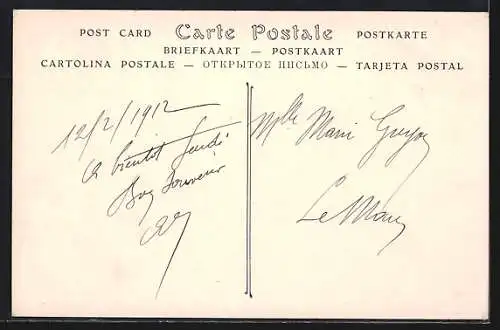 POST CARD Carte Postale POSTKARTE
BRIEFKAART — POSTKAART
CARTOLINA POSTALE — ОТКРЫТОЕ ПИСЬМО — TARJETA POSTAL
12/2/1912
a bientôt Jeudi
Bon Souvenir
Mlle Marie
Le Mans